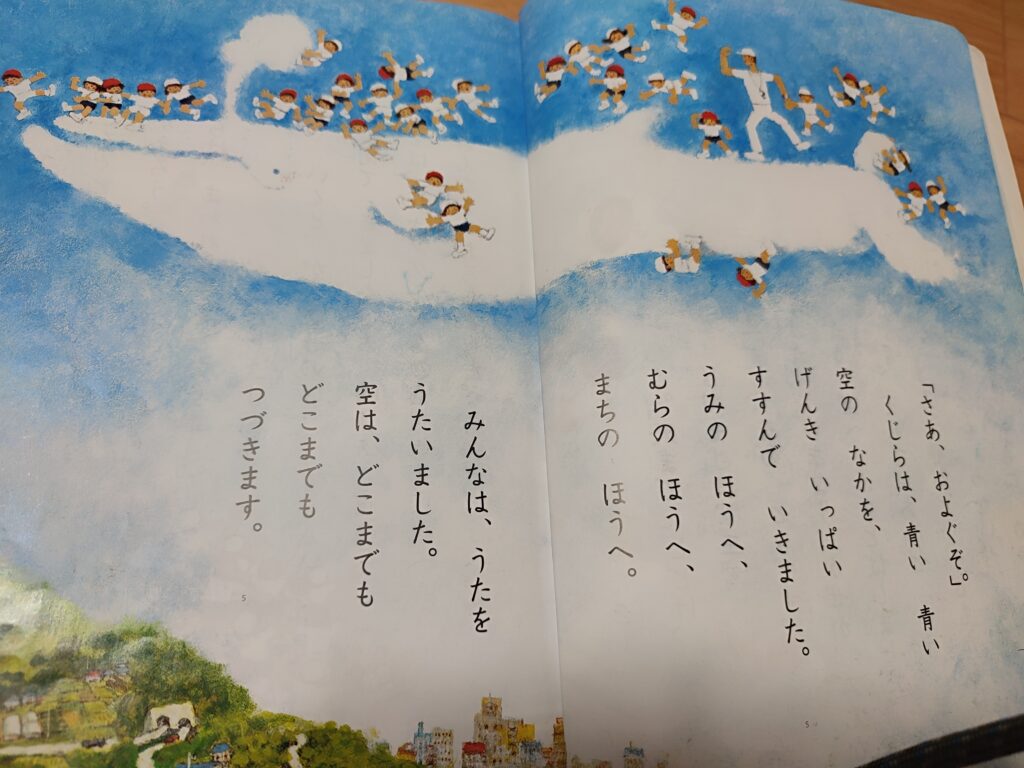 「さあ、およぐぞ。」
くじらは、青い　青い
空の　なかを、
げんき　いっぱい
すすんで　いきました。
うみの　ほうへ、
むらの　ほうへ、
まちの　ほうへ。
みんなは、うたを
うたいました。
空は、どこまでも
どこまでも
つづきます。
5
5